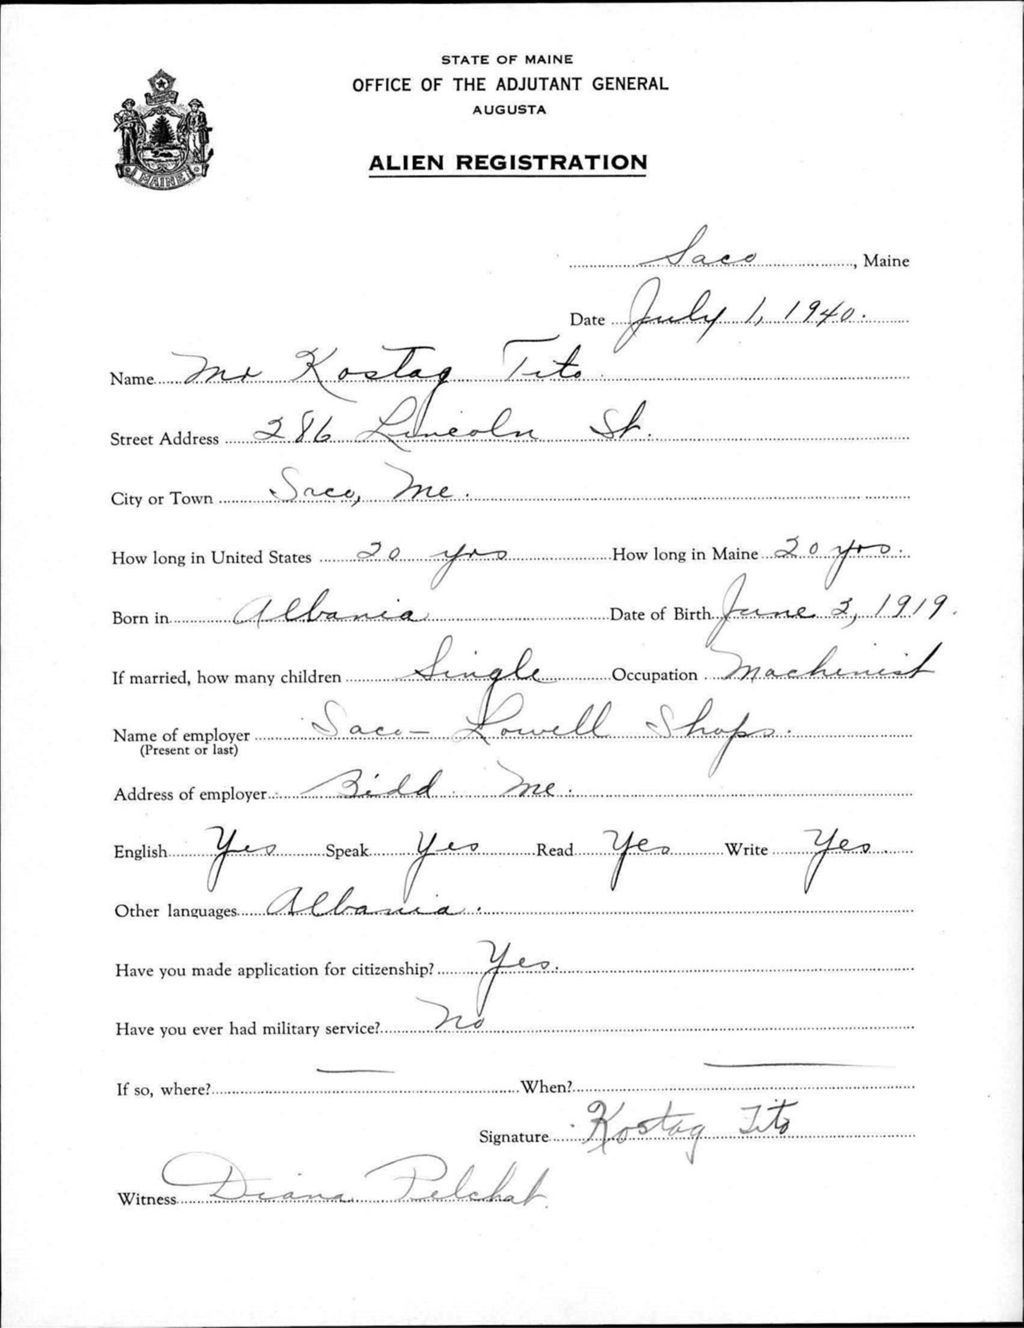 STATE OF MAINE
OFFICE OF THE ADJUTANT GENERAL
AUGUSTA
MAINE
ALIEN REGISTRATION
Saco, Maine
Date July 1, 1940.
Name Mr Kostag Tito
Street Address 286 Lincoln St.
City or Town Saco, Me.
How long in United States 20 yrs How long in Maine 20 yrs.
Born in Albania Date of Birth June 3, 1919.
If married, how many children Single Occupation Machinist
Name of employer Saco-Lowell Shops.
(Present or last)
Address of employer Bidd. Me.
English Yes Speak Yes Read Yes Write Yes
Other languages Albania.
Have you made application for citizenship? Yes.
Have you ever had military service? No
If so, where? — When? —
Signature Kostag Tito
Witness Diana Pelchat